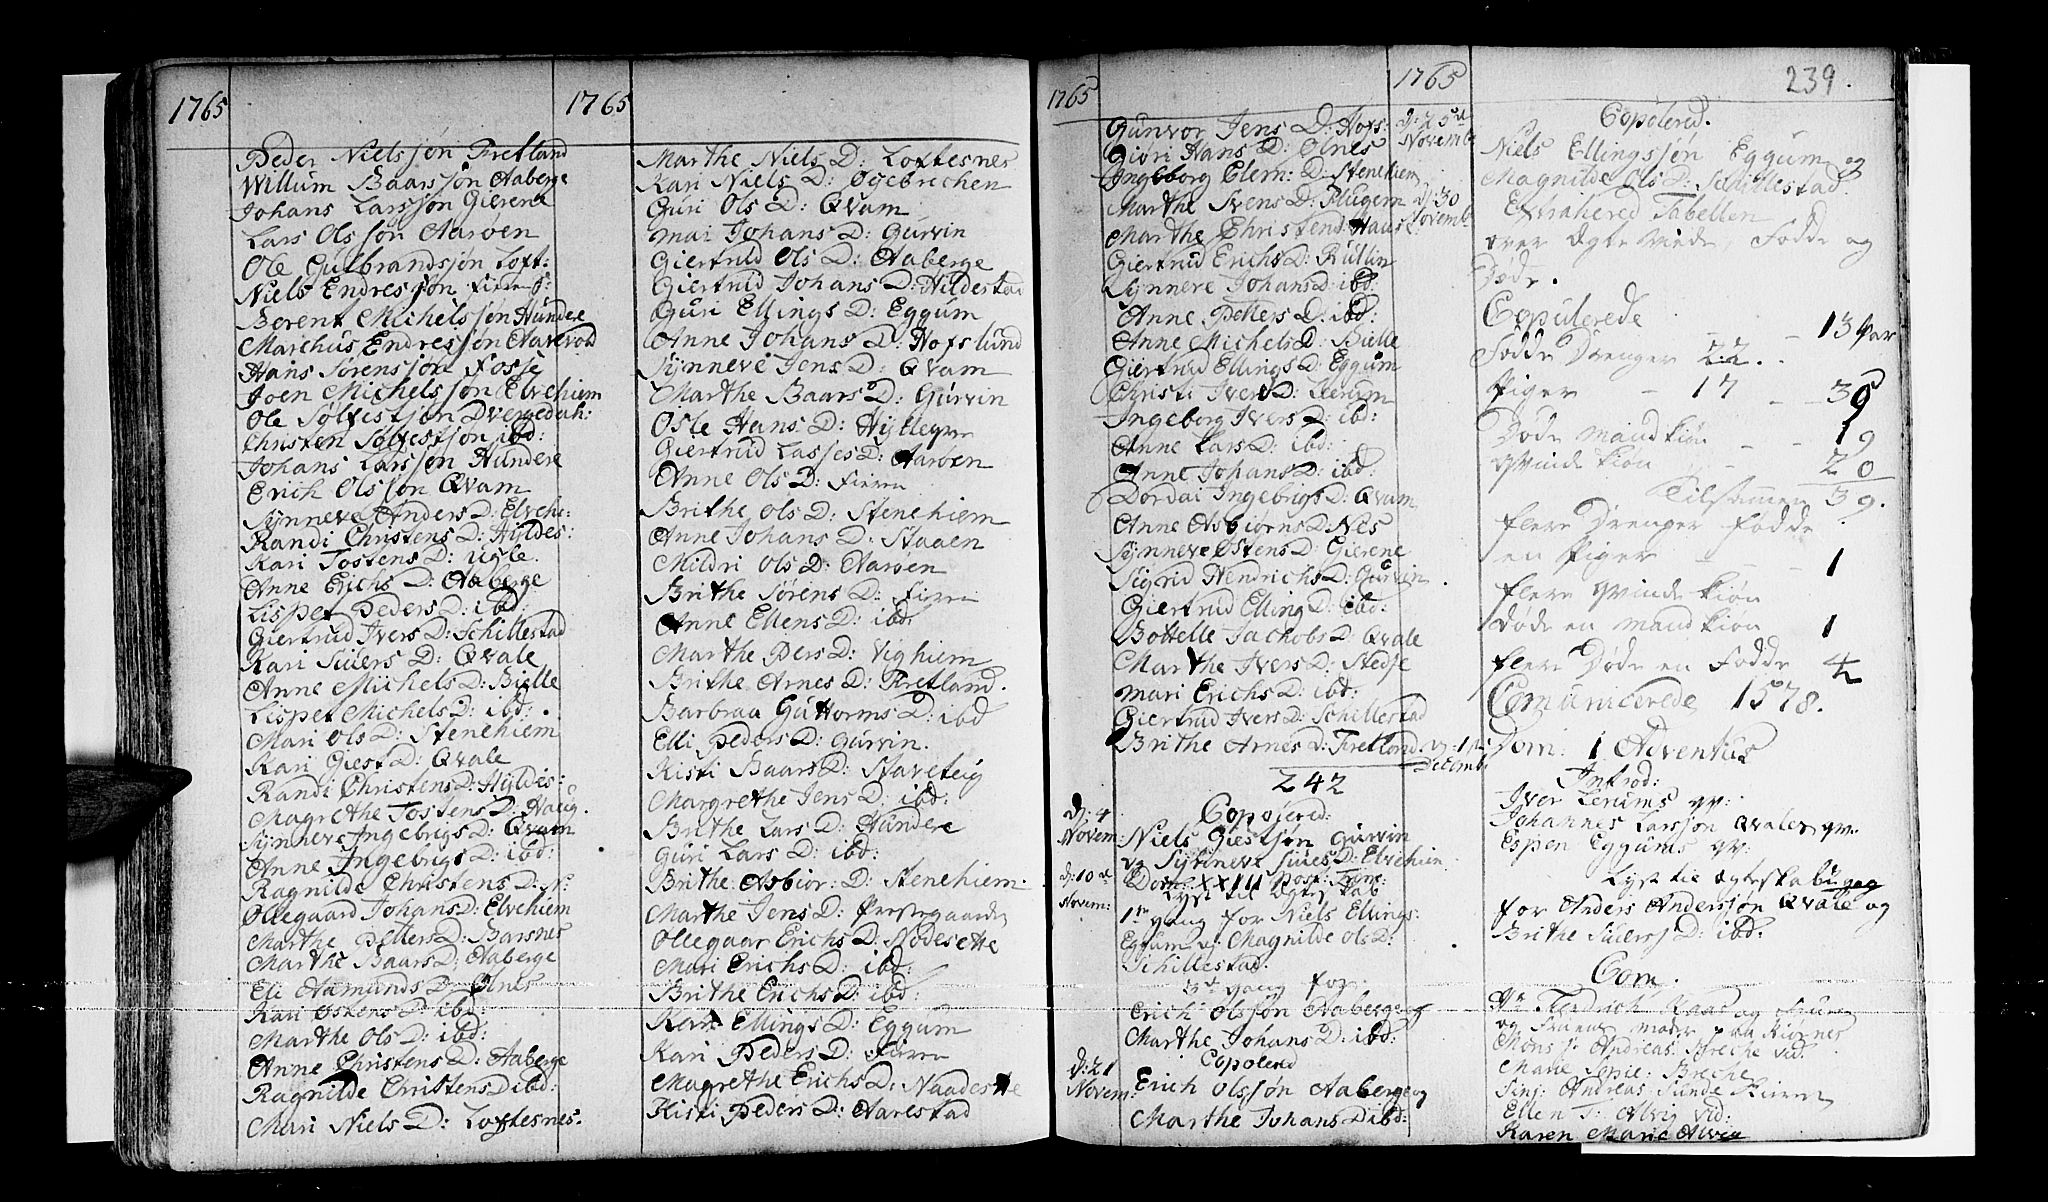 1765
Peder Nielssøn Fretland
Willum Baarssøn Aaberge
Johans Larssøn Gierene
Lars Olssøn Aarøen
Ole Gulbrandsøn Loft:
Niels Endressøn
Berent Michelssøn Hundere
Marchus Endressøn Aarevold
Hans Sørensøn Fosse
Joen Michelssøn Elvehiem
Ole Sølfestsøn Dvergedah:
Christen Sølfestsøn ibd:
Johans Larssøn Hundere
Erich Olssøn Qvam
Synneve Anders D: Elvehi:
Randi Christens D: Hyldes:
Kari Tostens D: Uglе.
Anne Erichs D: Aaberge
Lispet Peders D: ibd:
Giertrud Ivers D: Schillestad
Kari Siuers D: Qvale
Anne Michels D: Bielle
Lispet Michels D: ibd:
Mari Ols D: Stenehiem
Kari Giest D: Qvale
Randi Christens D: Hyldes:
Magrethe Tostens D: Haug.
Synneve Ingebrigs D: Qvam
Anne Ingebrigs D: ibd:
Ragnilde Christens D: N:
Ollegaard Johans D: Elvehiem
Marthe Petters D: Barsnes
Marthe Baars D: Aaberge
Eli Aamunds D: Ølnes
Kari Østens D: ibd:
Marthe Ols D: ibd:
Anne Christens D: Aaberge
Ragnilde Christens D ibd:
Mari Niels D: Loftesnes.
1765
Marthe Niels D: Loftesnes
Kari Niels D: Øyebrechen
Guri Ols D: Qvam
Mai Johans D: Gurvin
Giertrud Ols D: Aaberge
Giertrud Johans D: Hildestad
Guri Ellings D: Eggum
Anne Johans D: Hofslund
Synneve Jens D: Qvam
Marthe Baars D: Gurvin
Osle Hans D: Hyllegrn
Giertrud Lasses D: Aarøen
Anne Ols D: Firrn
Brithe Ols D: Stenehiem
Anne Johans D: Staaen
Mildri Ols D: Aarøen
Brithe Sørens D: Firrn
Anne Ellens D: ibd:
Marthe Pers D: Vighiem
Brithe Arnes D: Fretland.
Barbraa Guttorms D: ibd
Elli Peders D: Gurvin.
Kisti Baars D: Staveteig
Margrethe Jens D: ibd:
Brithe Lars D: Hundere
Guri Lars D: ibd:
Brithe Asbiør: D: Stenehiem:
Marthe Jens D: Prestegaarden
Ollegaar Erichs D: Nodesete
Mari Erichs D: ibd:
Brithe Erichs D: ibd:
Kari Ellings D: Eggum
Kari Peders D: Firrn
Magrethe Erichs D: Naadesete
Kisti Peders D: Aarestad
1765
Gunvor Jens D: Hofs:
Giøri Hans D: Ølnes
Ingeborg Clem: D: Stenehiem
Marthe Svens D: Flugem
Marthe Christens D: Haus
Giertrud Erichs D: Rullin
Synneve Johans D: ibd:
Anne Petters D: ibd:
Anne Michels D: Bielle
Giertrud Ellings D: Eggum
Christi Ivers D: Lerum
Ingeborg Ivers D: ibd:
Anne Lars D: ibd:
Anne Johans D: ibd:
Dordai Ingebrigs D: Qvam
Anne Asbiørns D: Nes
Synneve Ostens D: Gierene
Sigrid Hendrichs D: Gurvin
Giertrud Elling D: ibd:
Bottelle Jachobs D: Qvale
Marthe Ivers D: Stedje
Mari Erichs D: ibd:
Giertrud Ivers D: Schillestad
Brithe Arnes D: Fretland.
242
D: 4 Novem:
Copolered:
Niels Giestsøn Gurvin
og Synneve Siues D: Elvehiem
D: 10de Novem:
Dom: XXIII post: Trin:
Lyst til Egteskab
1te gang for Niels Ellings:
Eggum og Magnilde Ols D:
Schillestad.
3de gang for
Erich Olssøn Aaberge og
Marthe Johans D: ibd:
D: 21 Novem:
Copolered
Erich Olssøn Aaberge og
Marthe Johans D ibd:
1765
239.
D: 25de Novemb
Copolered.
Niels Ellingssøn Eggum og
Magnilde Ols D: Schillestad.
D: 30 Novemb:
Extrahered Tabellen
over Egteviede, Fødde og
Døde.
Copulerede - 13 par
Fødde Drenger 22.
Piger - 17 - 39
Døde mandkiøn - - 19
qvindekiøn - 20
Tilsamen 39.
flere Drenger fødde
en Piger - - 1
flere qvindekiøn
døde en mandkiøn 1
flere Døde en Fødde 4
Comunicerede 1578.
D: 1te Decemb:
Dom: 1 Adventus
Introd:
Iver Lerums qv:
Johannes Larssøn Qvales qv:
Espen Eggums qv:
Lyst til Egteskab 1 gag
for Anders Anderssøn Qvale og
Brithe Siuers D: ibd:
Com:
Hr Hendrich Kaas og Frue
og Fruens moder paa Kiørnes
Mons: Andreas Breche vid:
Marie Sopie Breche
Sinj: Andreas Sunde
Ellen T: Alvig vid:
Karen Marie Alvig